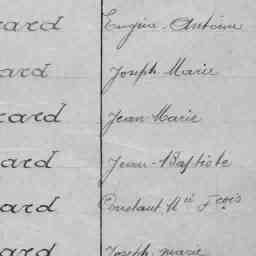 card Eugène Antoine
ard Joseph Marie
card Jean Marie
ard Jean-Baptiste
ard Constant Mie Fçois
ard Joseph marie